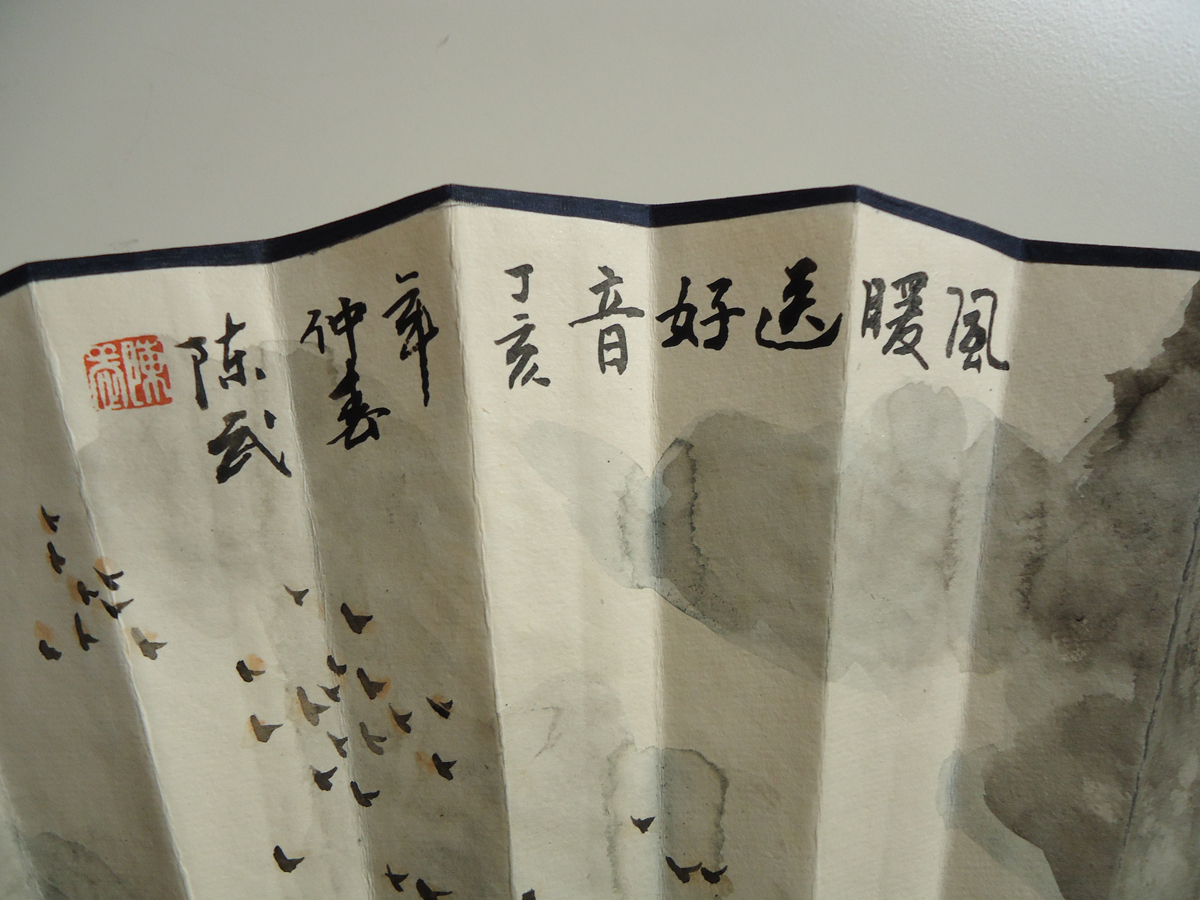 風暖送好音
丁亥
年
仲春
陈武